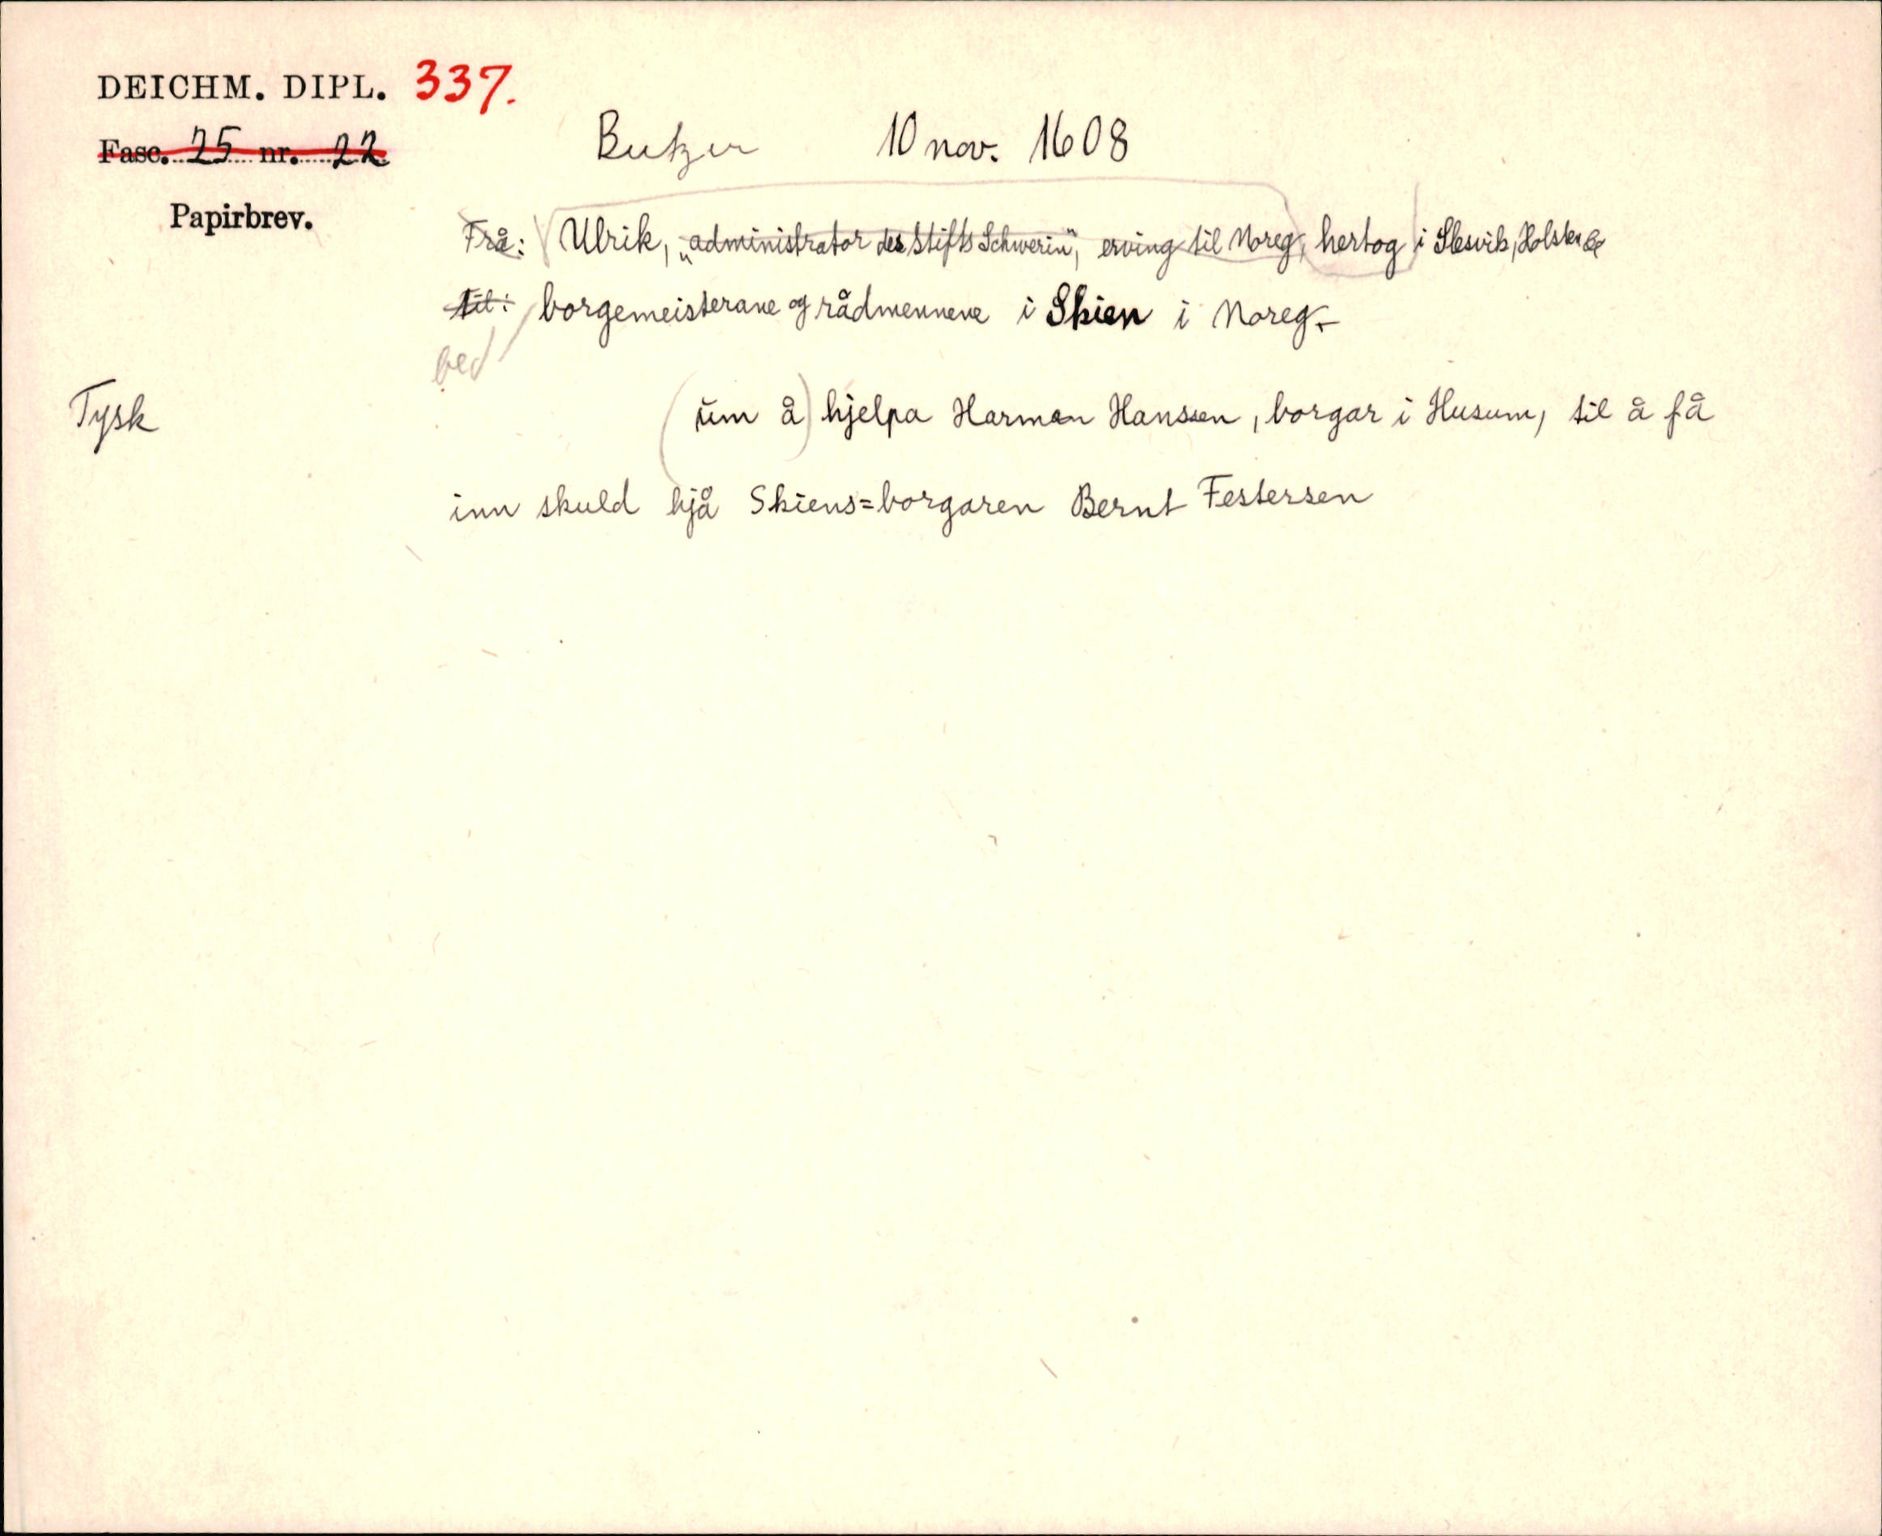 DEICHM. DIPL. 337.
Fasc. 25 nr. 22
Butzer 10 nov. 1608
Papirbrev.
Frå: Ulrik, „administrator des Stifts Schwerin", erving til Noreg, hertog i Slesvik, Holsten &
Til: borgemeisterane og rådmennene i Skien i Noreg.
bed
Tysk
(um å) hjelpa Harmen Hanssen, borgar i Husum, til å få
inn skuld hjå Skiens=borgaren Bernt Festersen